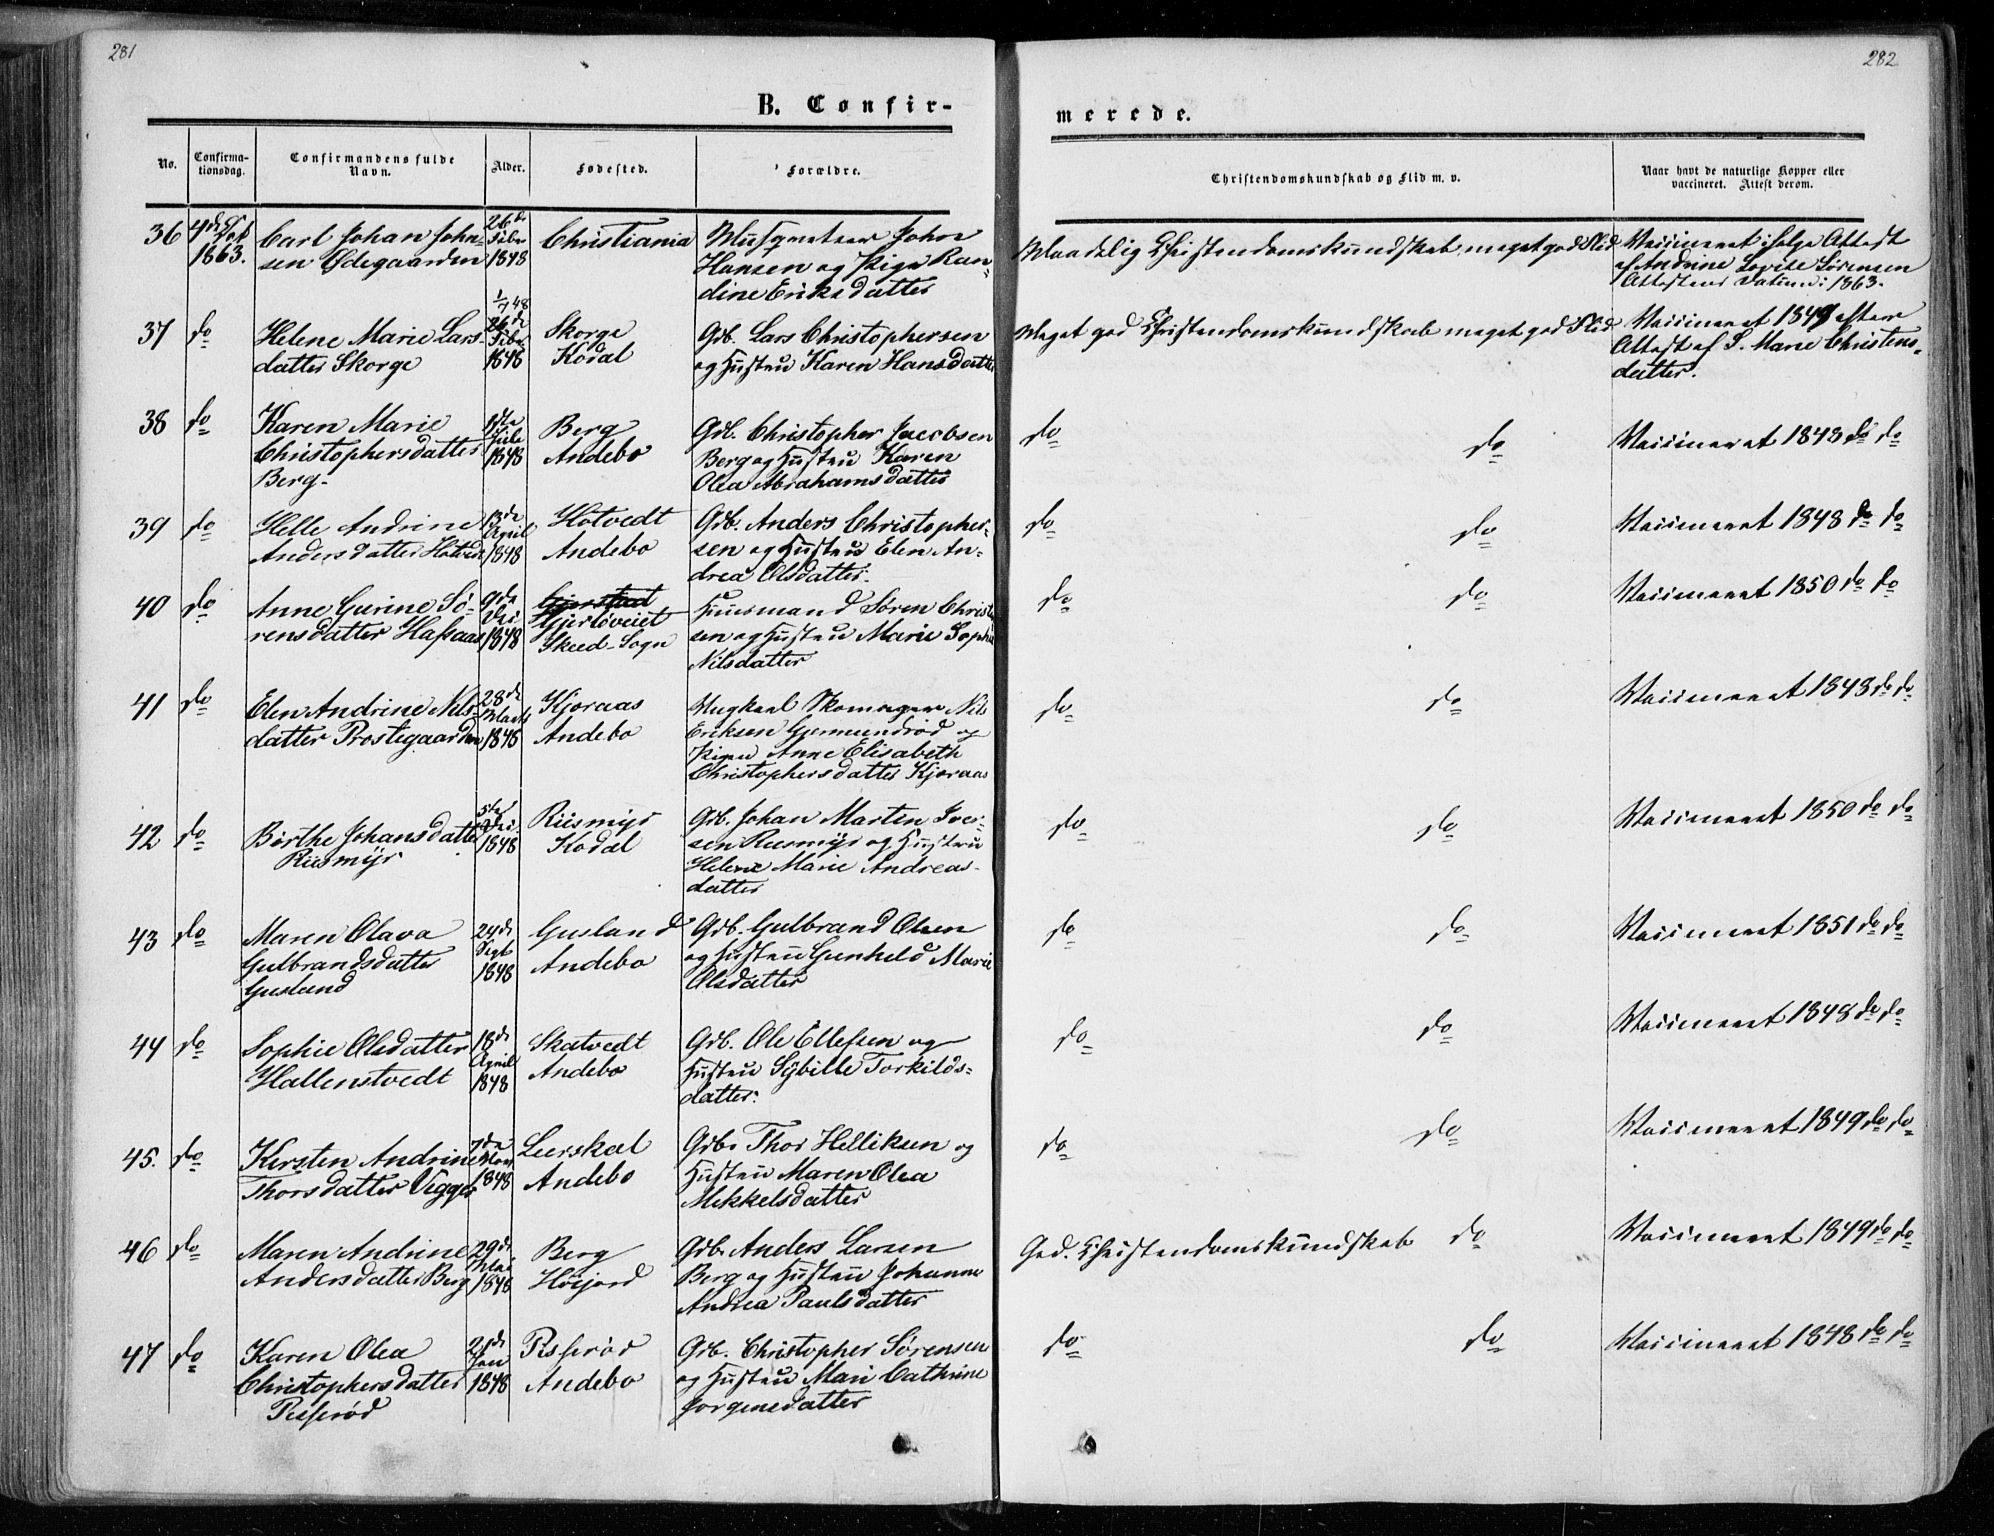 281
282
B. Confir-
merede.
No.
Confirma-
tionsdag.
Confirmandens fulde
Navn.
Alder.
Fødested.
Forældre.
Christendomskundskab og Flid m. v.
Naar havt de naturlige Kopper eller
vaccineret. Attest derom.
36 4de Oct 1863.
Carl Johan John-
sen Ødegaarden
26de Febr 1848
Christiania
Musqueteer John
Hansen og Pige Ran-
dine Eriksdatter
Maadelig Christendomskundskab, meget god Flid
Vaccineret ifølge Attest
af Andrine Sørensen
Attestens Datum: 1863.
37 do
Helene Marie Lars-
datter Skorge
26de Febr 1848
Skorge
Kodal
Gdb. Lars Christophersen
og Hustru Karen Hansdatter
Meget god Christendomskundskab meget god Flid
Vaccineret 1849 efter
Attest af S. Marie Christens-
datter.
38 do
Karen Marie
Christophersdatter
Berg-
1848
Berg
Andebo
Gdb. Christopher Jacobsen
Berg og Hustru Karen
Olea Abrahamsdatter
do
do
Vaccineret 1848 do do
39 do
Helle Andrine
Andersdatter
13de April 1848
Hotvedt
Andebo
Gdb. Anders Christopher-
sen og Hustru Elen An-
drea Olsdatter.
do
do
Vaccineret 1848 do do
40 do
Anne Gurine Sø-
rensdatter Hassaas
9de 1848
Gjerstad
Gjerløveiet
Skeed-Sogn
Huusmand Søren Christ
sen og Hustru Marie Sophie
Nilsdatter
do
do
Vaccineret 1850 do do
41 do
Elen Andrine Nils-
datter Prestegaarden
28de Marts 1848
Kjøraas
Andebo
Ungkarl Skomager Nils
Eriksen Gjermundrød og
Pigen Anne Elisabeth
Christophersdatter Kjøraas
do
do
Vaccineret 1848 do do
42 do
Birthe Johansdatter
Riismyr
5te 1848
Riismyr
Kodal
Gdb. Johan Martin Iver-
sen Riismyr og Hustru
Helene Marie Andreas-
datter
do
do
Vaccineret 1850 do do
43 do
Maren Olava
Gulbrandsdatter
Gusland
24de Sept 1848
Gusland
Andebo
Gdb. Gulbrand Olsen
og Hustru Gunhild Marie
Olsdatter
do
do
Vaccineret 1851 do do
44 do
Sophie Olsdatter
Hallenstvedt
18de April 1848
Skatvedt
Andebo
Gdb. Ole Ellefsen og
Hustru Sybille Torkilds-
datter.
do
do
Vaccineret 1848 do do
45. do
Kirsten Andrine
Thorsdatter
7de 1848
Leerskal
Andebo
Gdb. Thor Helliksen og
Hustru Maren Olea
Mikkelsdatter
do
do
Vaccineret 1849 do do
46 do
Maren Andrine
Andersdatter Berg
29de 1848
Berg
Høijord
Gdb. Anders Larsen
Berg og Hustru Johanne
Andrea Paulsdatter
God. Christendomskundskab
do
Vaccineret 1849 do do
47 do
Karen Olea
Christophersdatter
Pisserød
21de Jan 1848
Pisserød
Andebo
Gdb. Christopher Sørensen
og Hustru Mari Cathrine
Jørgensdatter
do
do
Vaccineret 1848 do do